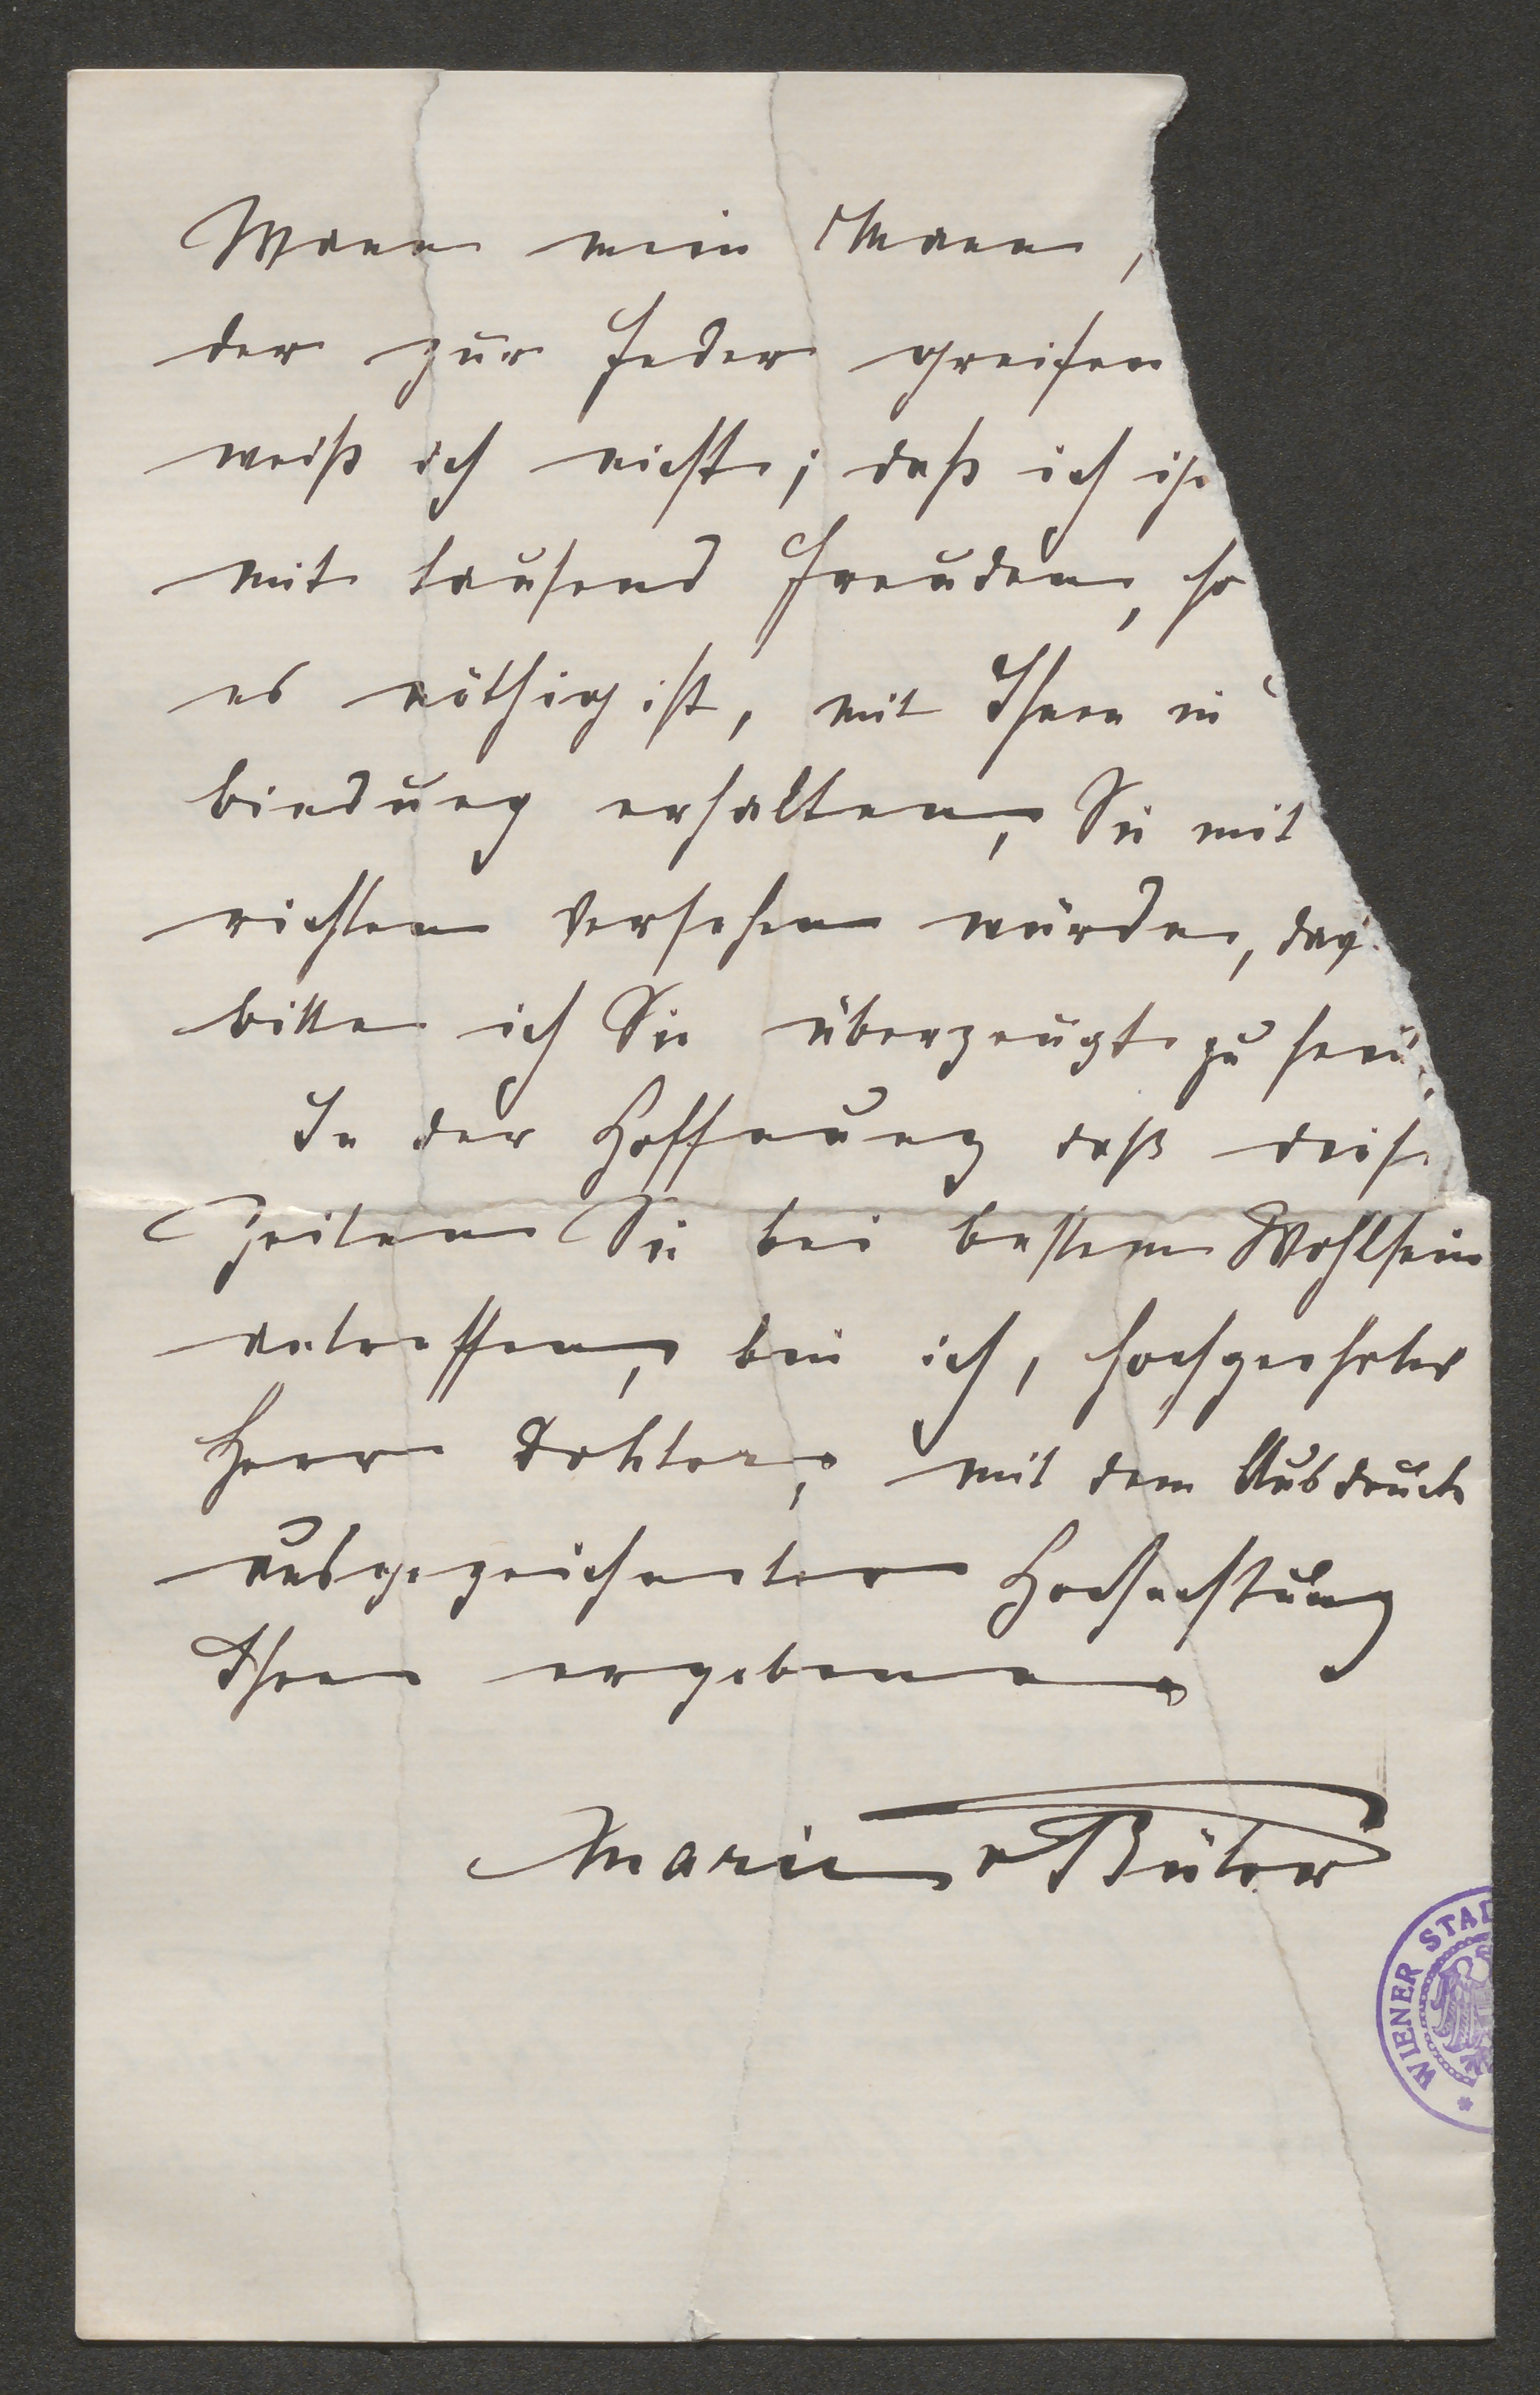 Wann mein Mann,
der zur Feder greifen
weiß ich nicht; daß ich ih
mit tausend Freuden, so
es nöthig ist, mit Ihnen in
bindung erhalten, Sie mit
richten versehen würde, da
bitte ich Sie überzeugt zu sein.
In der Hoffnung daß dies
Zeilen Sie bei bestem Wohlsein
antreffen, bin ich, hochgeehrter
Herr Doktor, mit dem Ausdruck
ausgezeichneter Hochachtung
Ihre ergebene
Marie v
WIENER STAD